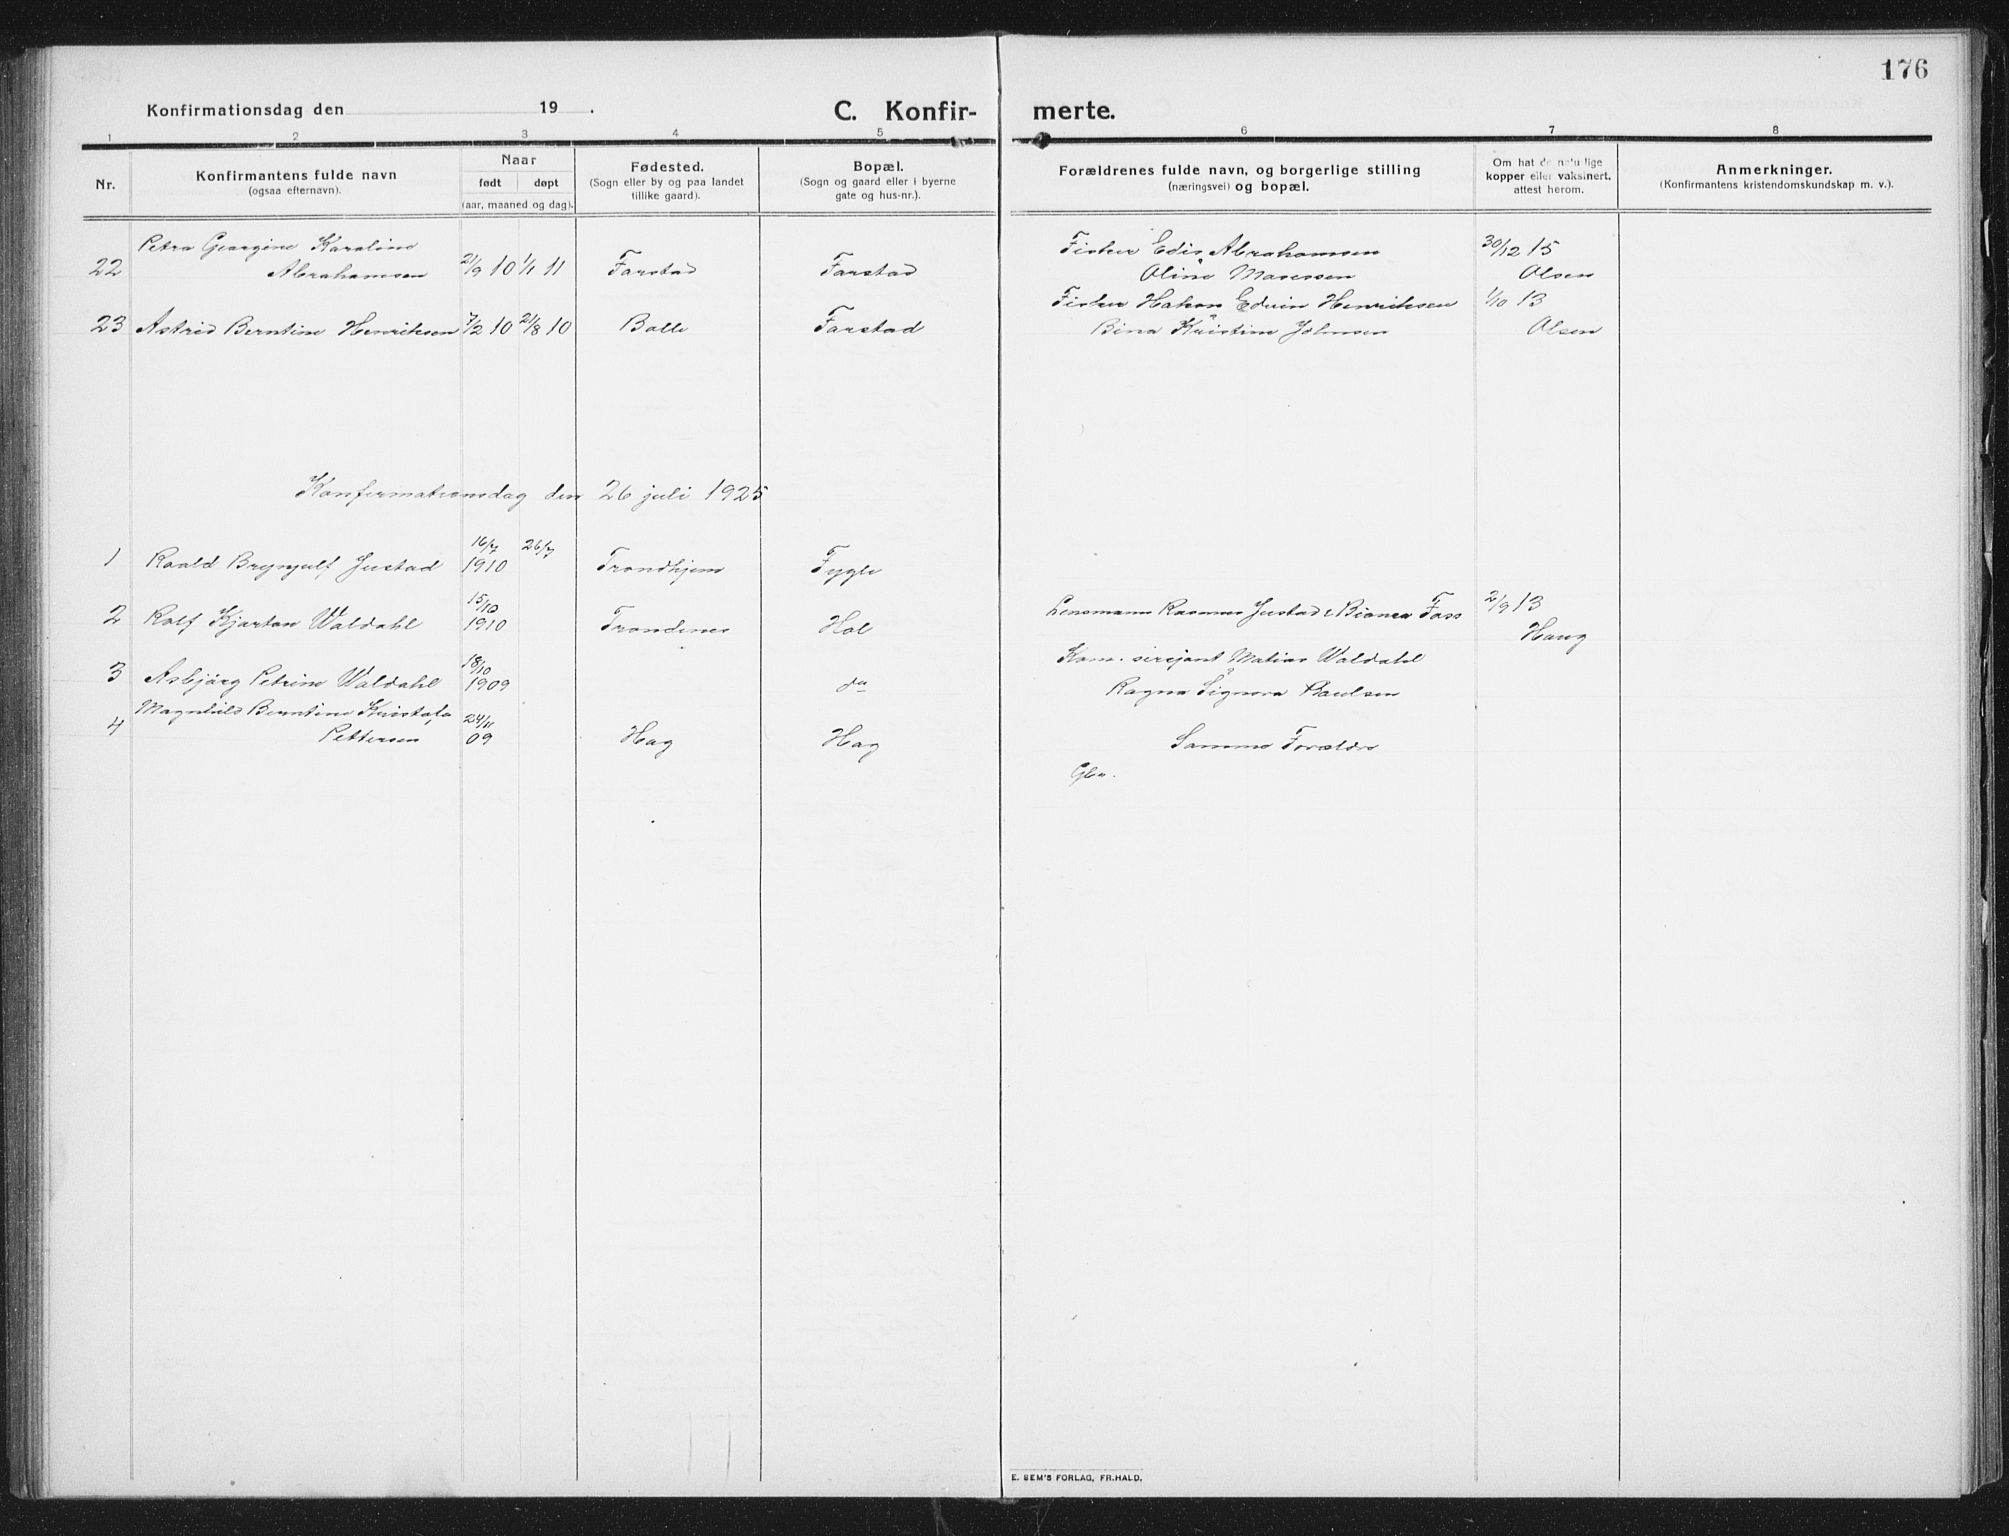 176
Konfirmationsdag den 19 .
C. Konfir-
merte.
1 2 3 4 5 6 7 8
Nr.
Konfirmantens fulde navn
(ogsaa efternavn).
Naar
født døpt
(aar, maaned og dag).
Fødested.
(Sogn eller by og paa landet
tillike gaard).
Bopæl.
(Sogn og gaard eller i byerne
gate og hus-nr.).
Forældrenes fulde navn, og borgerlige stilling
(næringsvei) og bopæl.
Om hat de naturlige
kopper eller vaksinert,
attest herom.
Anmerkninger.
(Konfirmantens kristendomskundskap m. v.).
Petra Georgine Karoline
22 Abrahamsen 21/9 10 1/1 11 Farstad Farstad
Fisker Edis Abrahamsen 30/12 15
Oline Maresen Olsen
23 Astrid Berntine Henriksen 7/2 10 21/8 10 Bolle Farstad
Fisker Hakon Edvin Henriksen 1/10 13
Bina Kristine Johnsen Olsen
Konfirmationsdag den 26 juli 1925
16/7 26/7
1 Roald Brynjulf Justad 1910 Trondhjem Fygle
15/10
2 Rolf Kjartan Waldahl 1910 Trondenes Hol
18/10
3 Asbjørg Petrine Waldahl 1909 do
Magnhild Berntine 24/11
4 Pettersen 09 Hag Hag
Lensmann Rasmus Justad & Bianca Foss 2/9 13
Haug
Kom. sersjant Matias Waldahl
Ragna Signora Paulsen
Samme Forældre
Gbr.
E. SEM'S FORLAG, FR.HALD.